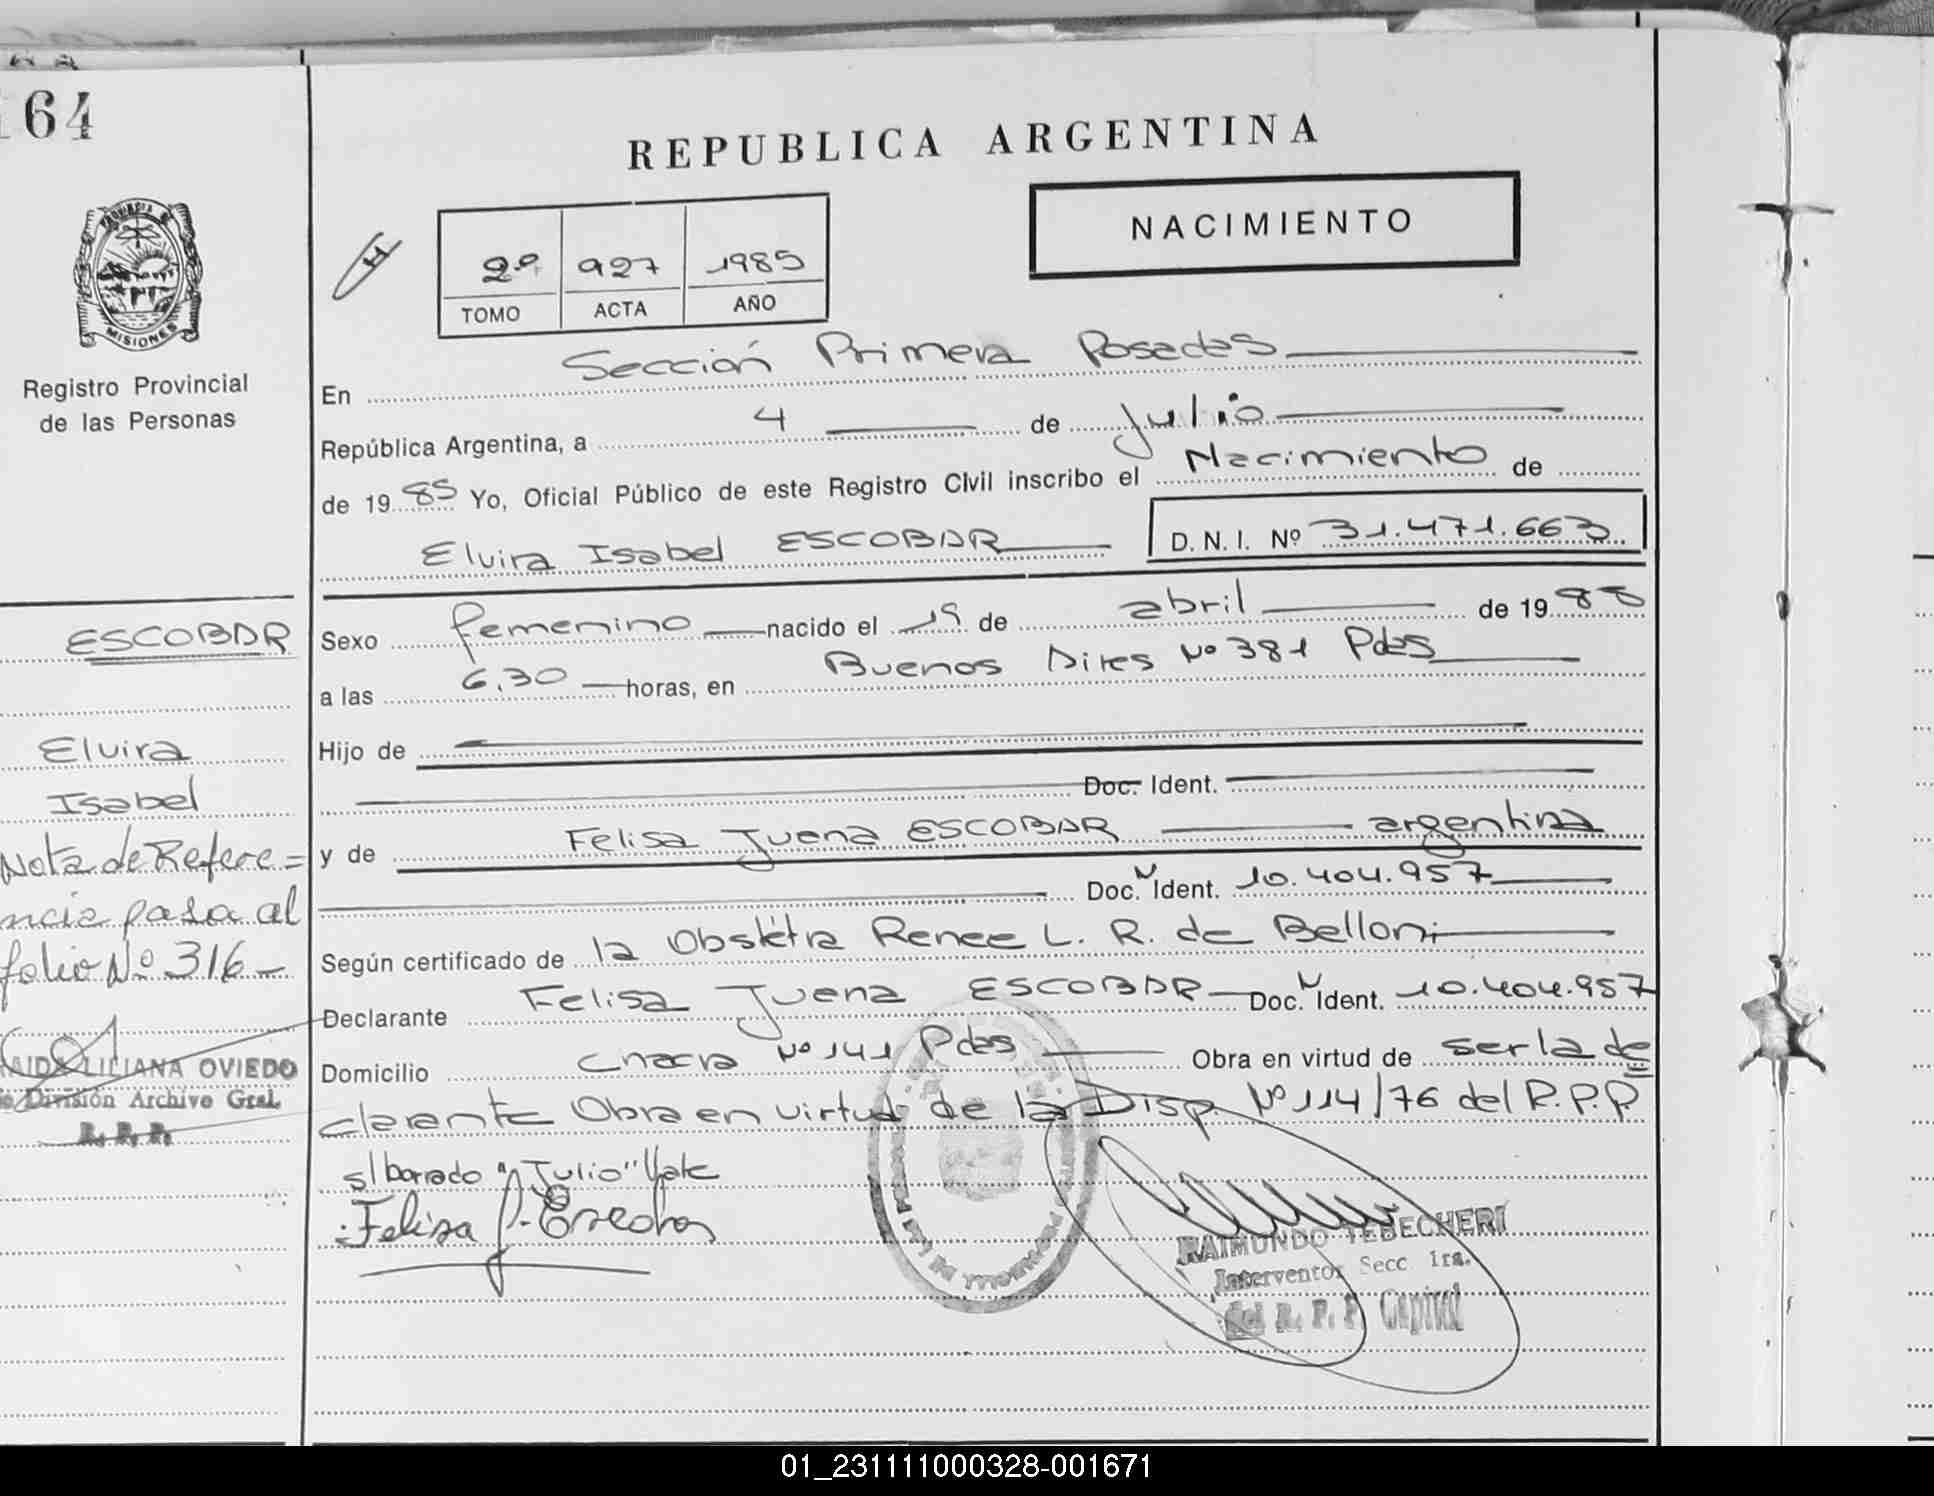 164
PROVINCIA DE
MISIONES
Registro Provincial
de las Personas
ESCOBAR
Elvira
Isabel
Nota de Refere=
ncia pasa al
folio Nº 316-
LILIANA OVIEDO
División Archivo Gral.
R. P. P.
REPUBLICA ARGENTINA
H
2º 927 1985
TOMO ACTA AÑO
NACIMIENTO
En Sección Primera Posadas
República Argentina, a 4 de Julio
de 1985 Yo, Oficial Público de este Registro Civil inscribo el Nacimiento de
Elvira Isabel ESCOBAR D.N.I. Nº 31.471.663
Sexo femenino nacido el 19 de abril de 19
a las 6,30 horas, en Buenos Aires Nº 381 Pdas
Hijo de
Doc. Ident.
y de Felisa Juana ESCOBAR argentina
Doc. N Ident. 10.404.957
Según certificado de la Obstétra Renee L. R. de Belloni
Declarante Felisa Juana ESCOBAR Doc. N Ident. 10.404.957
Domicilio Chacra Nº 141 Pdas Obra en virtud de ser la de=
clarante Obra en virtud de la Disp. Nº 114/76 del R.P.P.
s/borrado "Julio" Vale
Felisa J. Escobar
RAIMUNDO TEBECHERI
Interventor Secc 1ra.
del R. P. P. Capital
01_231111000328-001671